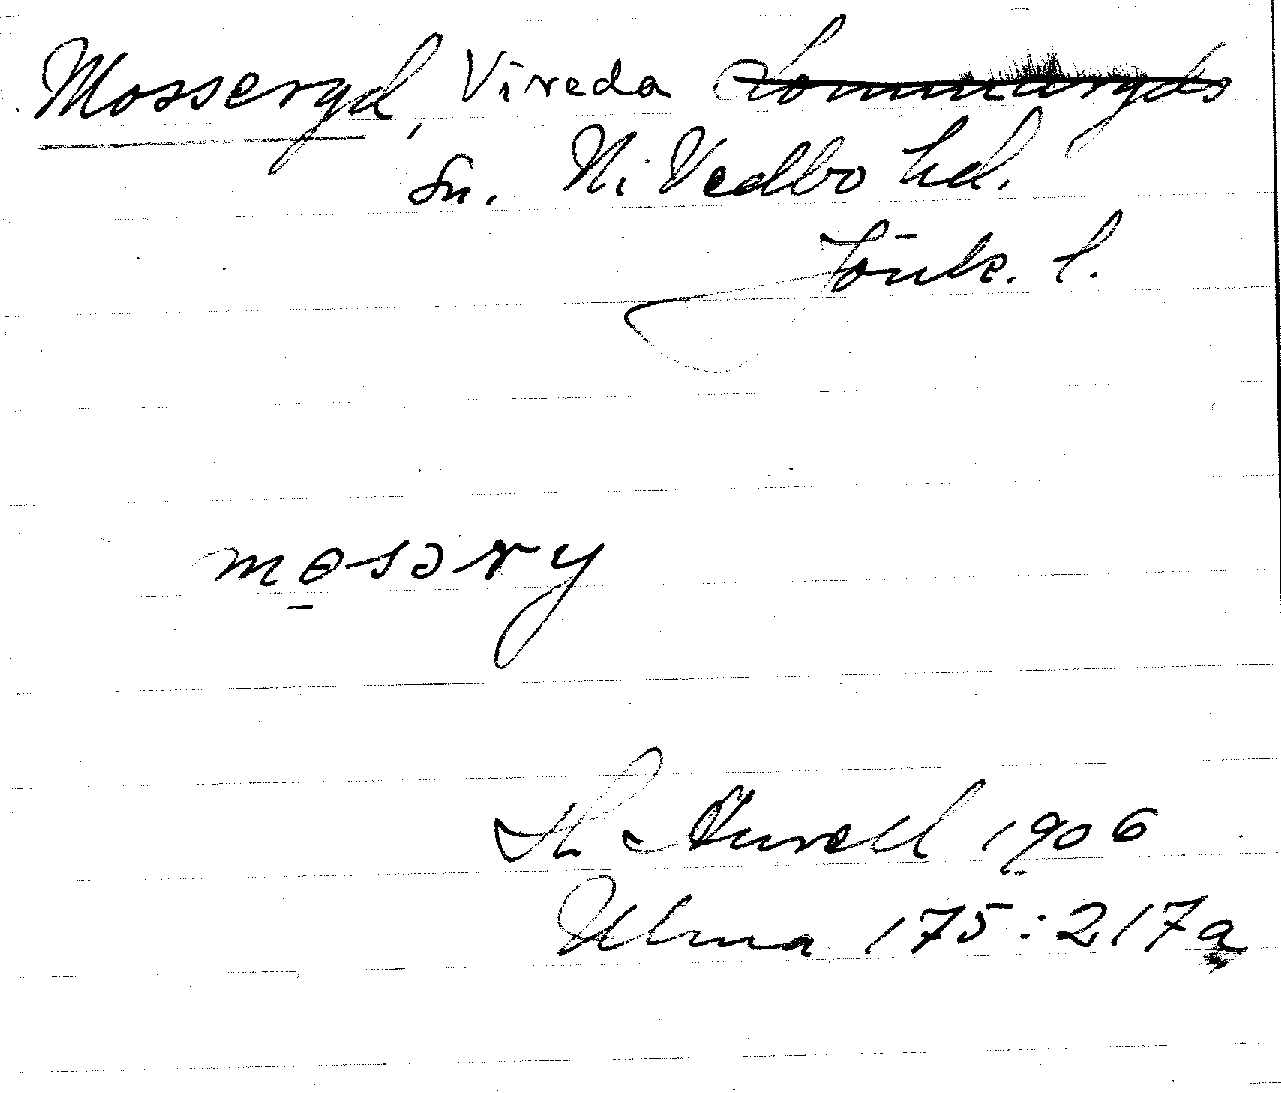 Mosseryd, Vireda Lommaryds
Sn. N. Vedbo hd.
Jönk. l.
mɵsəry
Th. Aurell 1906
Ulma 175:217a